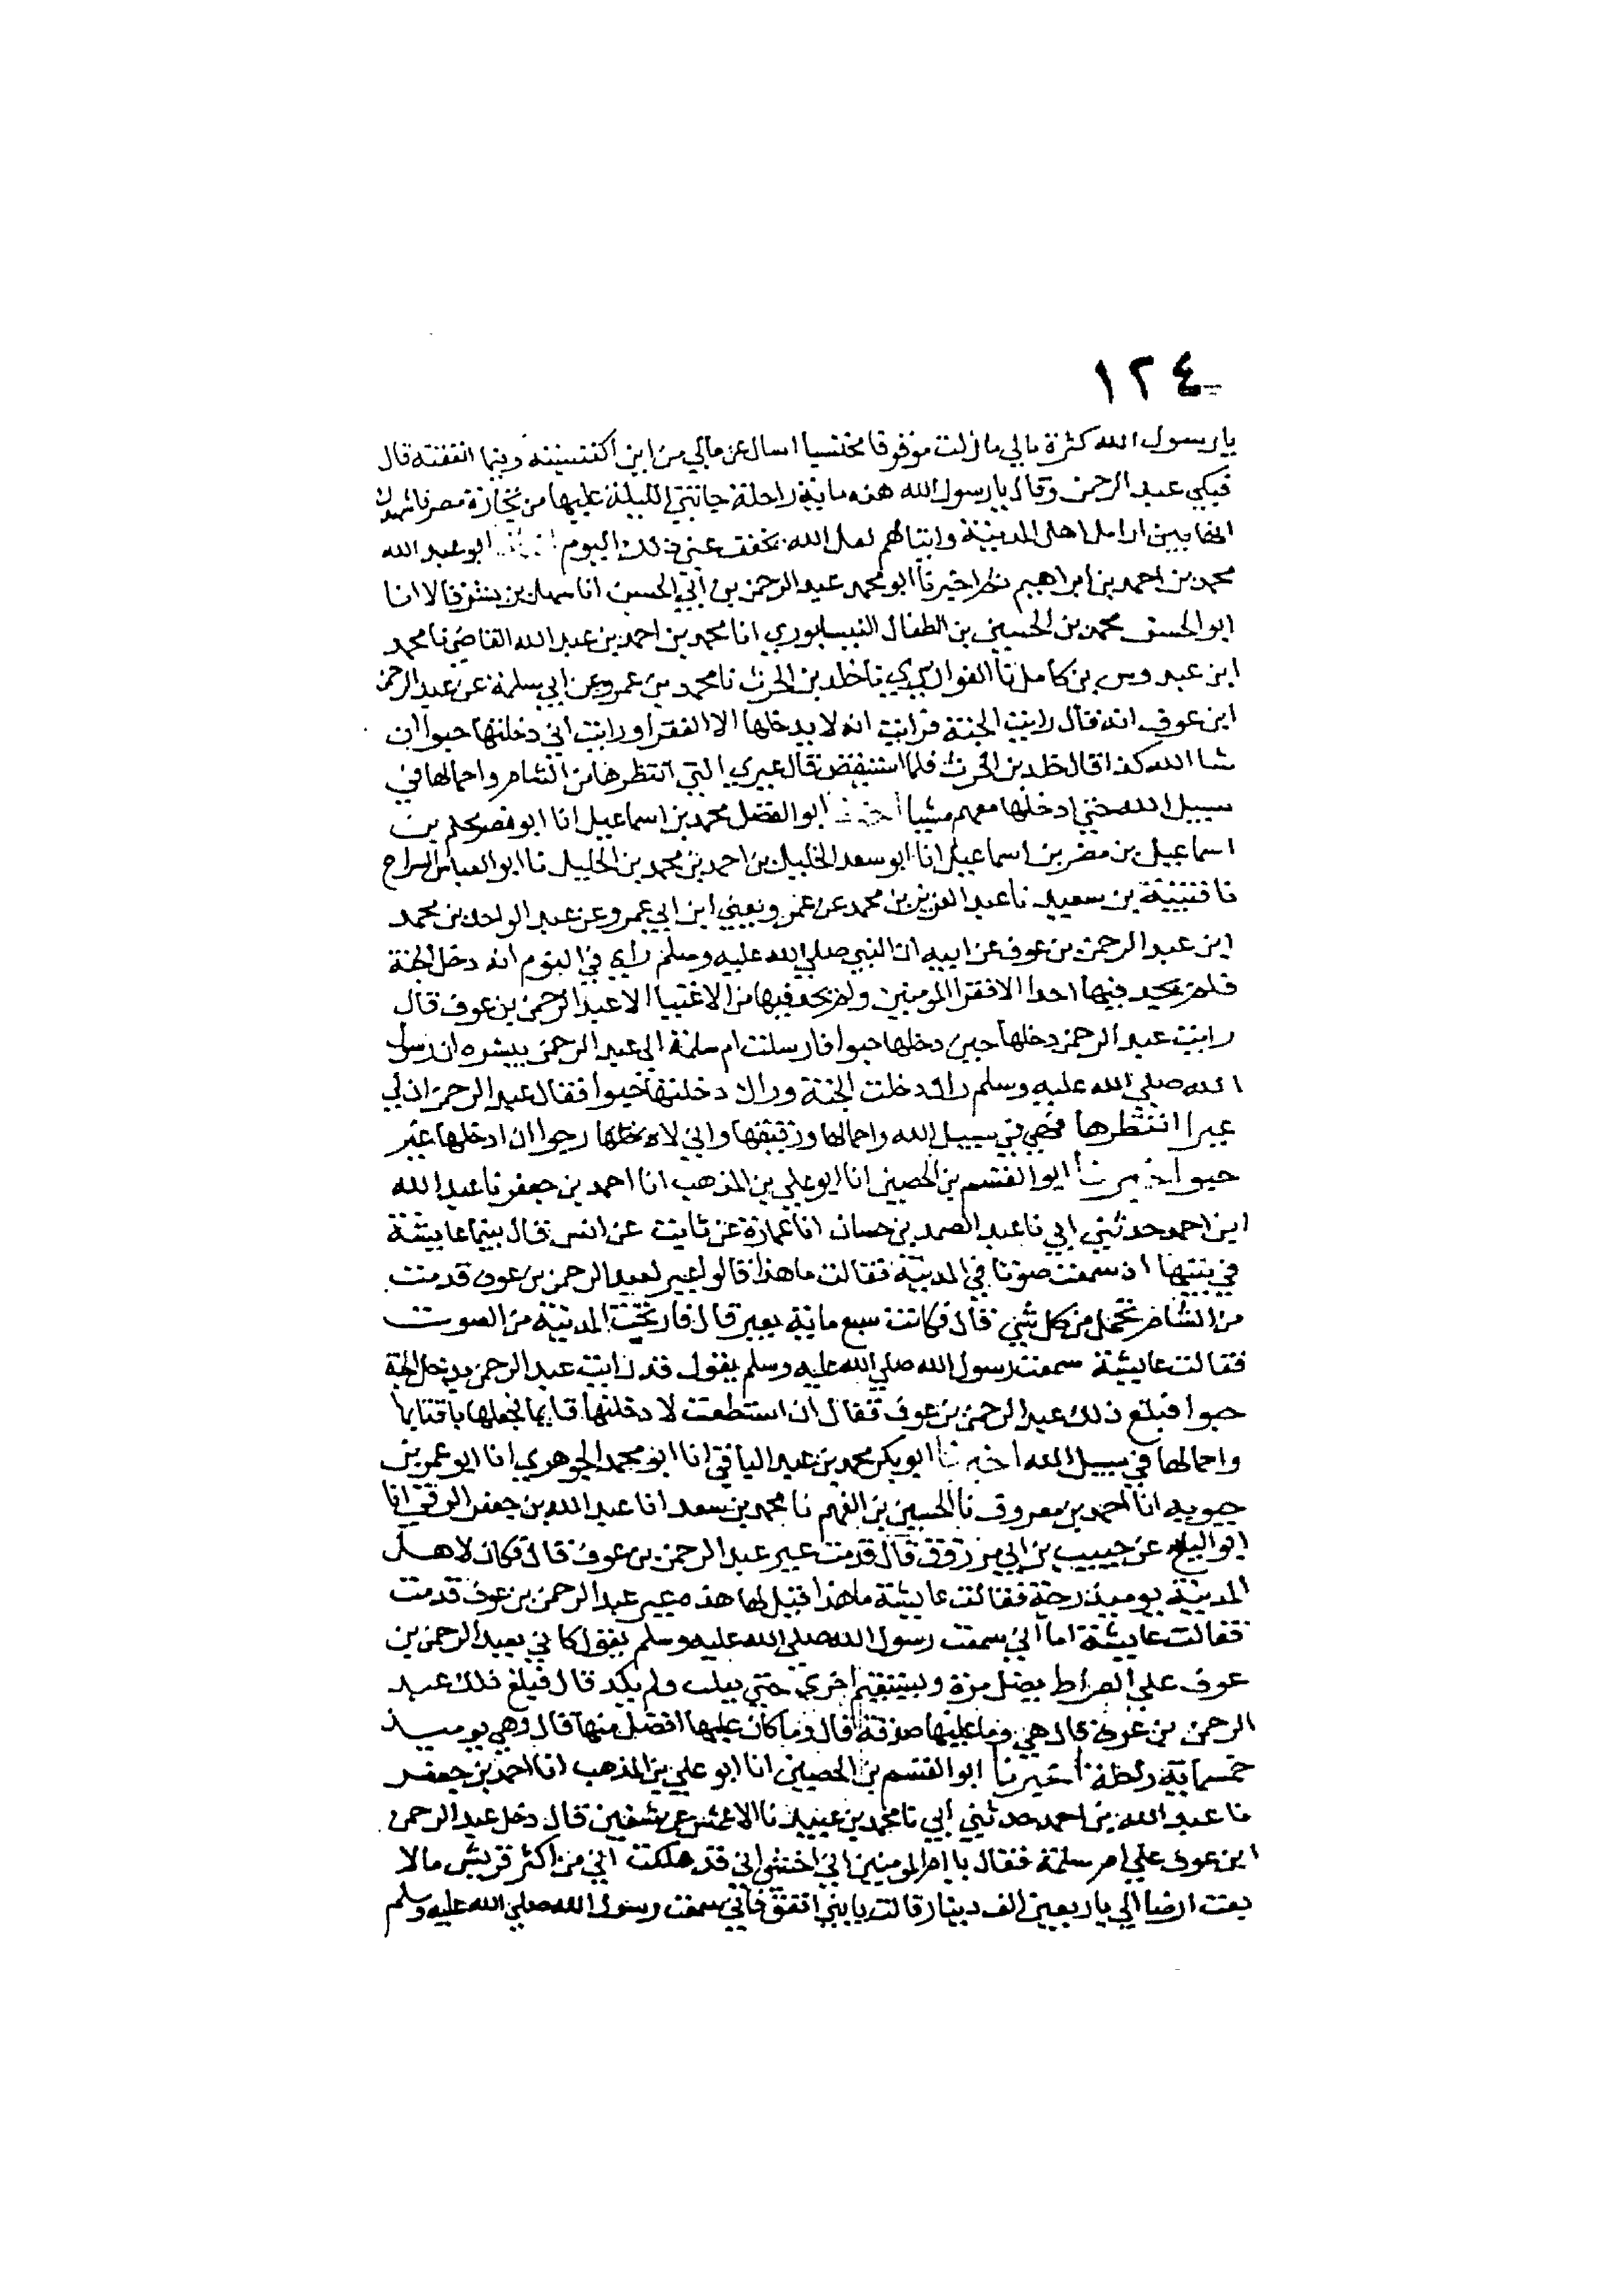 ١٢٤
يا رسول الله كثرة مالي ما زلت موقوفا محتسبا اسال عن مالي من اين اكتسبته وفيما انفقته قال
فبكى عبد الرحمن وقال يا رسول الله هذه ماية راحلة جاتني الليلة عليها من تجارة مصر فاشهدك
انها بين ارامل اهل المدينة وايتامهم لعل الله يخفف عني ذلك اليوم ابو عبد الله
محمد بن احمد بن ابراهيم اخبرنا ابو محمد عبد الرحمن بن ابي الحسين انا سهل بن بشر قالا انا
ابو الحسن محمد بن الحسين بن الطفال النيسابوري انا محمد بن احمد بن عبد الله القاضي نا محمد
ابن عبدوس بن كامل نا القواريري نا خلد بن الحرث نا محمد بن عمرو عن ابي سلمة عن عبد الرحمن
ابن عوف انه قال رايت الجنة فرايت انه لا يدخلها الا الفقرا ورايت اني دخلتها حبوا ان
شا الله كذا قال خلد بن الحرث فلما استيقض قال عيري التي انتظرها من الشام واحمالها في
سبيل الله حتى ادخلها معهم مشيا ابو الفضل محمد بن اسماعيل انا ابو مضر محلم بن
اسماعيل بن مضر بن اسماعيل انا ابو سعد الخليل بن احمد بن محمد بن الخليل نا ابو العباس السراج
نا قتيبة بن سعيد نا عبد العزيز بن محمد عن عمرو يعني ابن ابي عمرو عن عبد الواحد بن محمد
ابن عبد الرحمن بن عوف عن ابيه ان النبي صلى الله عليه وسلم راى في النوم انه دخل الجنة
فلم يجد فيها احدا الا فقرا المومنين ولم يجد فيها من الاغنيا الا عبد الرحمن بن عوف قال
رايت عبد الرحمن دخلها حين دخلها حبوا فارسلت ام سلمة الى عبد الرحمن يبشره ان رسول
الله صلى الله عليه وسلم راك دخلت الجنة وراك دخلتها حبوا فقال عبد الرحمن ان لي
عيرا انتظرها فهي في سبيل الله واحمالها ورقيقها واني لارجوا ان ادخلها غير
حبوا اخبرنا ابو القسم بن الحصين انا ابو علي بن المذهب انا احمد بن جعفر نا عبد الله
ابن احمد حدثني ابي نا عبد الصمد بن حسان انا عمارة عن ثابت عن انس قال بينما عايشة
في بيتها اذ سمعت صوتا في المدينة فقالت ما هذا قالوا عير لعبد الرحمن بن عوف قدمت
من الشام تحمل من كل شي قال فكانت سبع ماية بعير قال فارتجت المدينة من الصوت
فقالت عايشة سمعت رسول الله صلى الله عليه وسلم يقول قد رايت عبد الرحمن يدخل الجنة
حبوا فبلغ ذلك عبد الرحمن بن عوف فقال ان استطعت لادخلنها قايما فجعلها باقتابها
واحمالها في سبيل الله اخبرنا ابو بكر محمد بن عبد الباقي انا ابو محمد الجوهري انا ابو عمر بن
حيويه انا احمد بن معروف نا الحسين بن الفهم نا محمد بن سعد انا عبد الله بن جعفر الرقي انا
ابو المليح عن حبيب بن ابي مرزوق قال قدمت عير عبد الرحمن بن عوف قال فكان لاهل
المدينة يوميذ رجة فقالت عايشة ما هذا قيل لها هذه عير عبد الرحمن بن عوف قدمت
فقالت عايشة اما اني سمعت رسول الله صلى الله عليه وسلم يقول كاني بعبد الرحمن بن
عوف علي الصراط يميل مرة ويستقيم اخرى حتى يفلت ولم يكد قال فبلغ ذلك عبد
الرحمن بن عوف قال هي وما عليها صدقة قال وما كان عليها افضل منها قال وهي يوميذ
خمسماية راحلة اخبرنا ابو القسم بن الحصين انا ابو علي بن المذهب انا احمد بن جعفر
نا عبد الله بن احمد حدثني ابي نا محمد بن عبيد نا الاعمش عن شقيق قال دخل عبد الرحمن
ابن عوف علي ام سلمة فقال يا ام المومنين اني اخشى اني قد هلكت اني من اكثر قريش مالا
بعت ارضا لي باربعين الف دينار قالت يا بني انفق فاني سمعت رسول الله صلى الله عليه وسلم